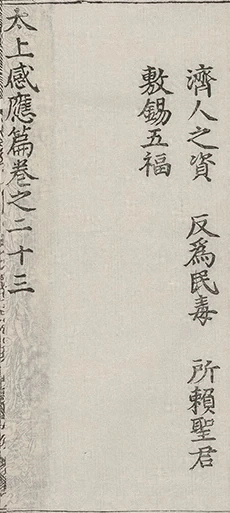 濟人之資　反為民毒　所賴聖君
敷錫五福
太上感應篇卷之二十三